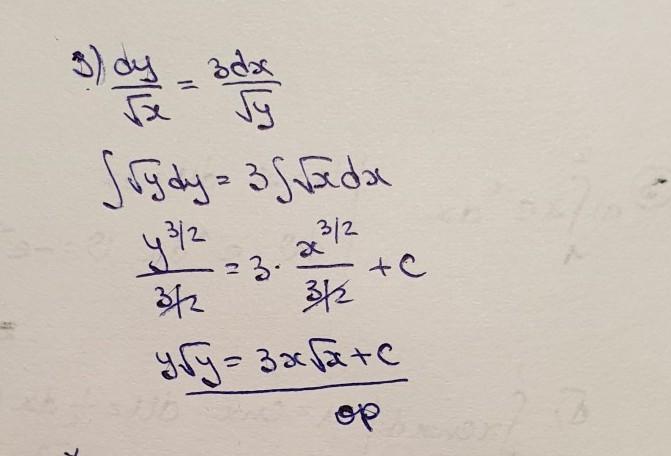 3) dy/√x = 3dx/√y
∫√y dy = 3∫√x dx
y^3/2 / 3/2 = 3 · x^3/2 / 3/2 + C
y√y = 3x√x + C
op